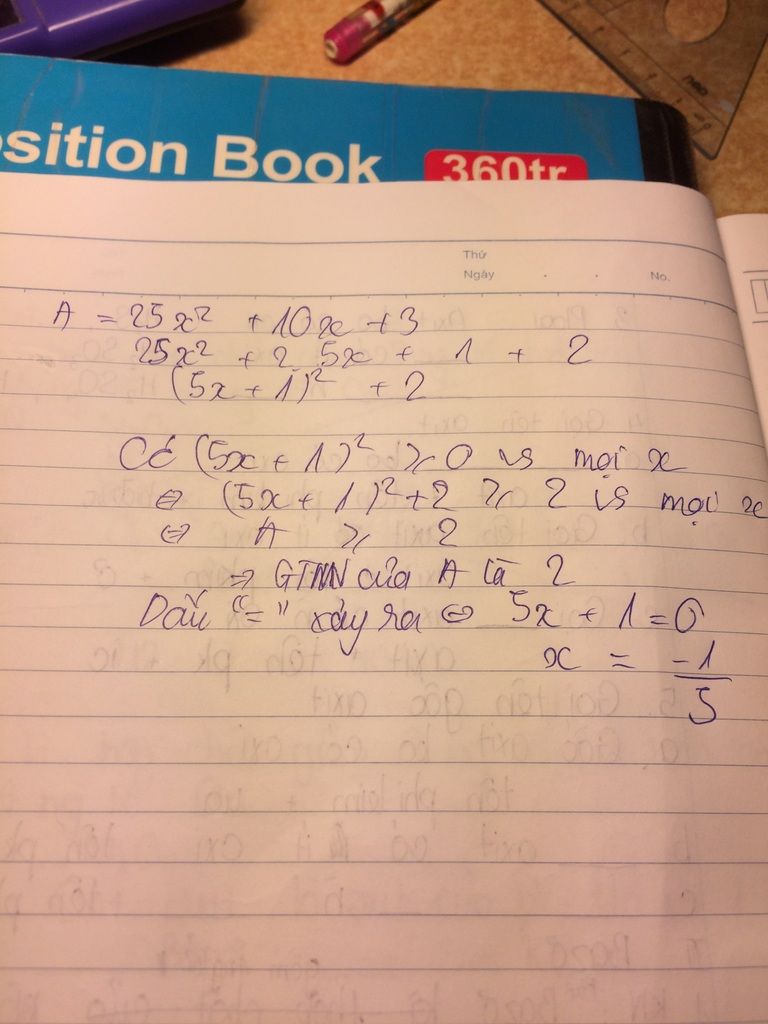 sition Book
360tr
Thứ
Ngày . . No.
A = 25x² + 10x + 3
25x² + 2.5x + 1 + 2
(5x + 1)² + 2
Có (5x + 1)² ≥ 0 vs mọi x
⇔ (5x + 1)² + 2 ≥ 2 vs mọi x
⇔ A ≥ 2
⇒ GTNN của A là 2
Dấu "=" xảy ra ⇔ 5x + 1 = 0
x = -1/5